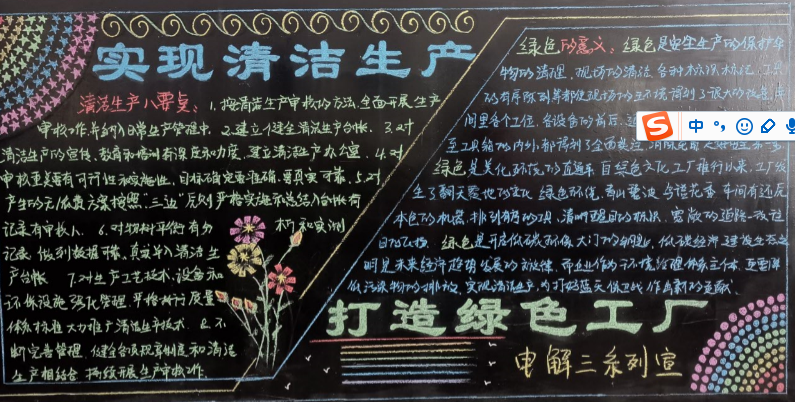 实现清洁生产
清洁生产八要点：1.按清洁生产审核的方法,全面开展生产
审核工作,并纳入日常生产管理中. 2.建立健全清洁生产台帐. 3.对
清洁生产的宣传、教育和培训有深度和力度,建立清洁生产办公室. 4.对
审核要有可行性和实施性,目标确定要准确,要真实可靠. 5.对
产生的无/低费方案按照“三边”原则,严格实施和总结入台帐有
记录有审核人. 6.对物料平衡有分析和实测
记录,做到数据可靠,真实录入清洁生
产台帐 7.对生产工艺技术、设备和
环保设施强化管理,严格执行质量
体系标准大力推广清洁生产技术. 8.不
断完善管理,健全各项规章制度和清洁
生产相结合,持续开展生产审核工作.
绿色的意义：绿色是安全生产的保护伞
物的清理,现场的清洁,各种标识标注,工具
的有序陈列等都使现场的卫生环境得到了很大的改善
间里各个工位,各设备的前后
至工具箱的内外,都得到了全面整洁
绿色是美化环境的直通车,自绿色文化工厂推行以来,工厂发
生了翻天覆地的变化,绿色环绕,青山碧波,鸟语花香,车间有还原
本色的机器,排列有序的工具,清晰醒目的标识,宽敞的道路一改往
日的 绿色是开启低碳环保大门的钥匙,低碳经济建设生态文
明是未来经济趋势发展的主旋律,而企业作为环境治理体系主体,更要降
低污染物的排放,实现清洁生产,为打好蓝天保卫战作出新的贡献.
打造绿色工厂
电解三系列宣
中